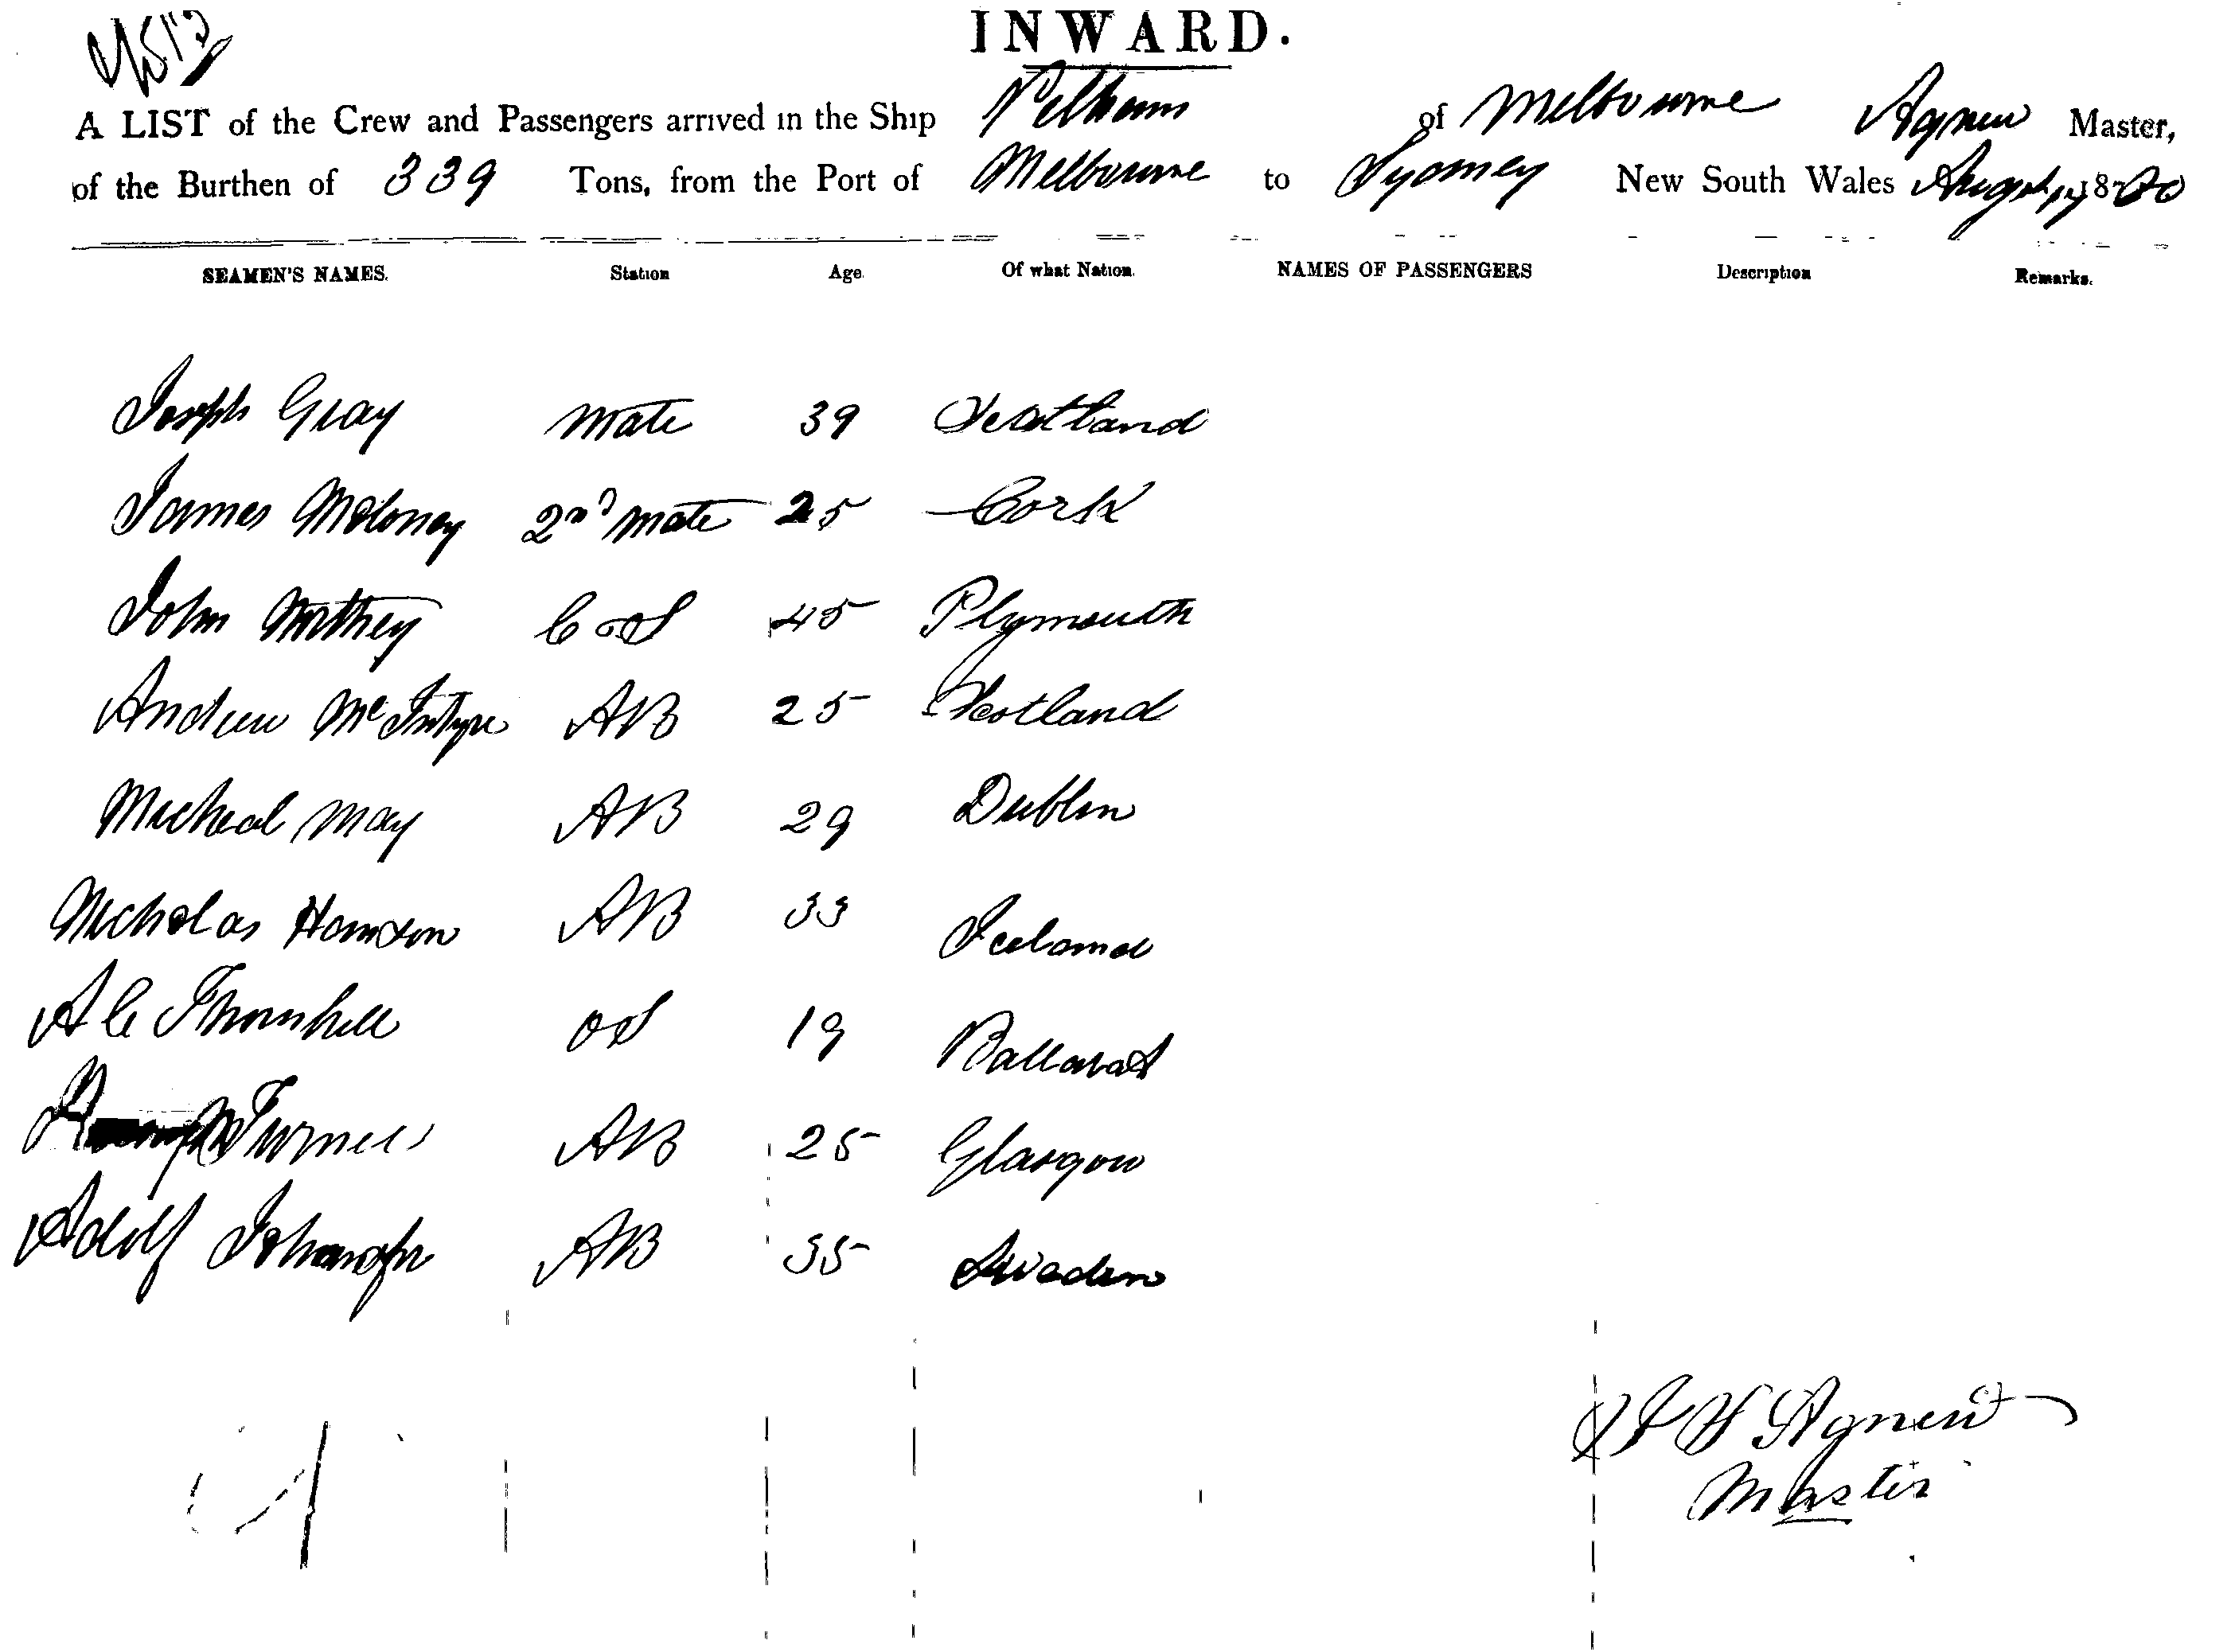 INWARD.
A LIST of the Crew and Passengers arrived in the Ship Pelham of Melbourne Agnew Master,
of the Burthen of 339 Tons, from the Port of Melbourne to Sydney New South Wales August 18
SEAMEN'S NAMES. Station Age. Of what Nation. NAMES OF PASSENGERS Description Remarks.
Joseph Gray Mate 39 Scotland
James Moloney 2nd Mate 25 Cork
John Northey C & S 45 Plymouth
Andrew McIntyre AB 25 Scotland
Micheal May AB 29 Dublin
Nicholas AB 33 Iceland
A C Thornhill OS 19 Ballarat
Turner AB 25 Glasgow
Adolf AB 35 Sweden
Agnew
Master